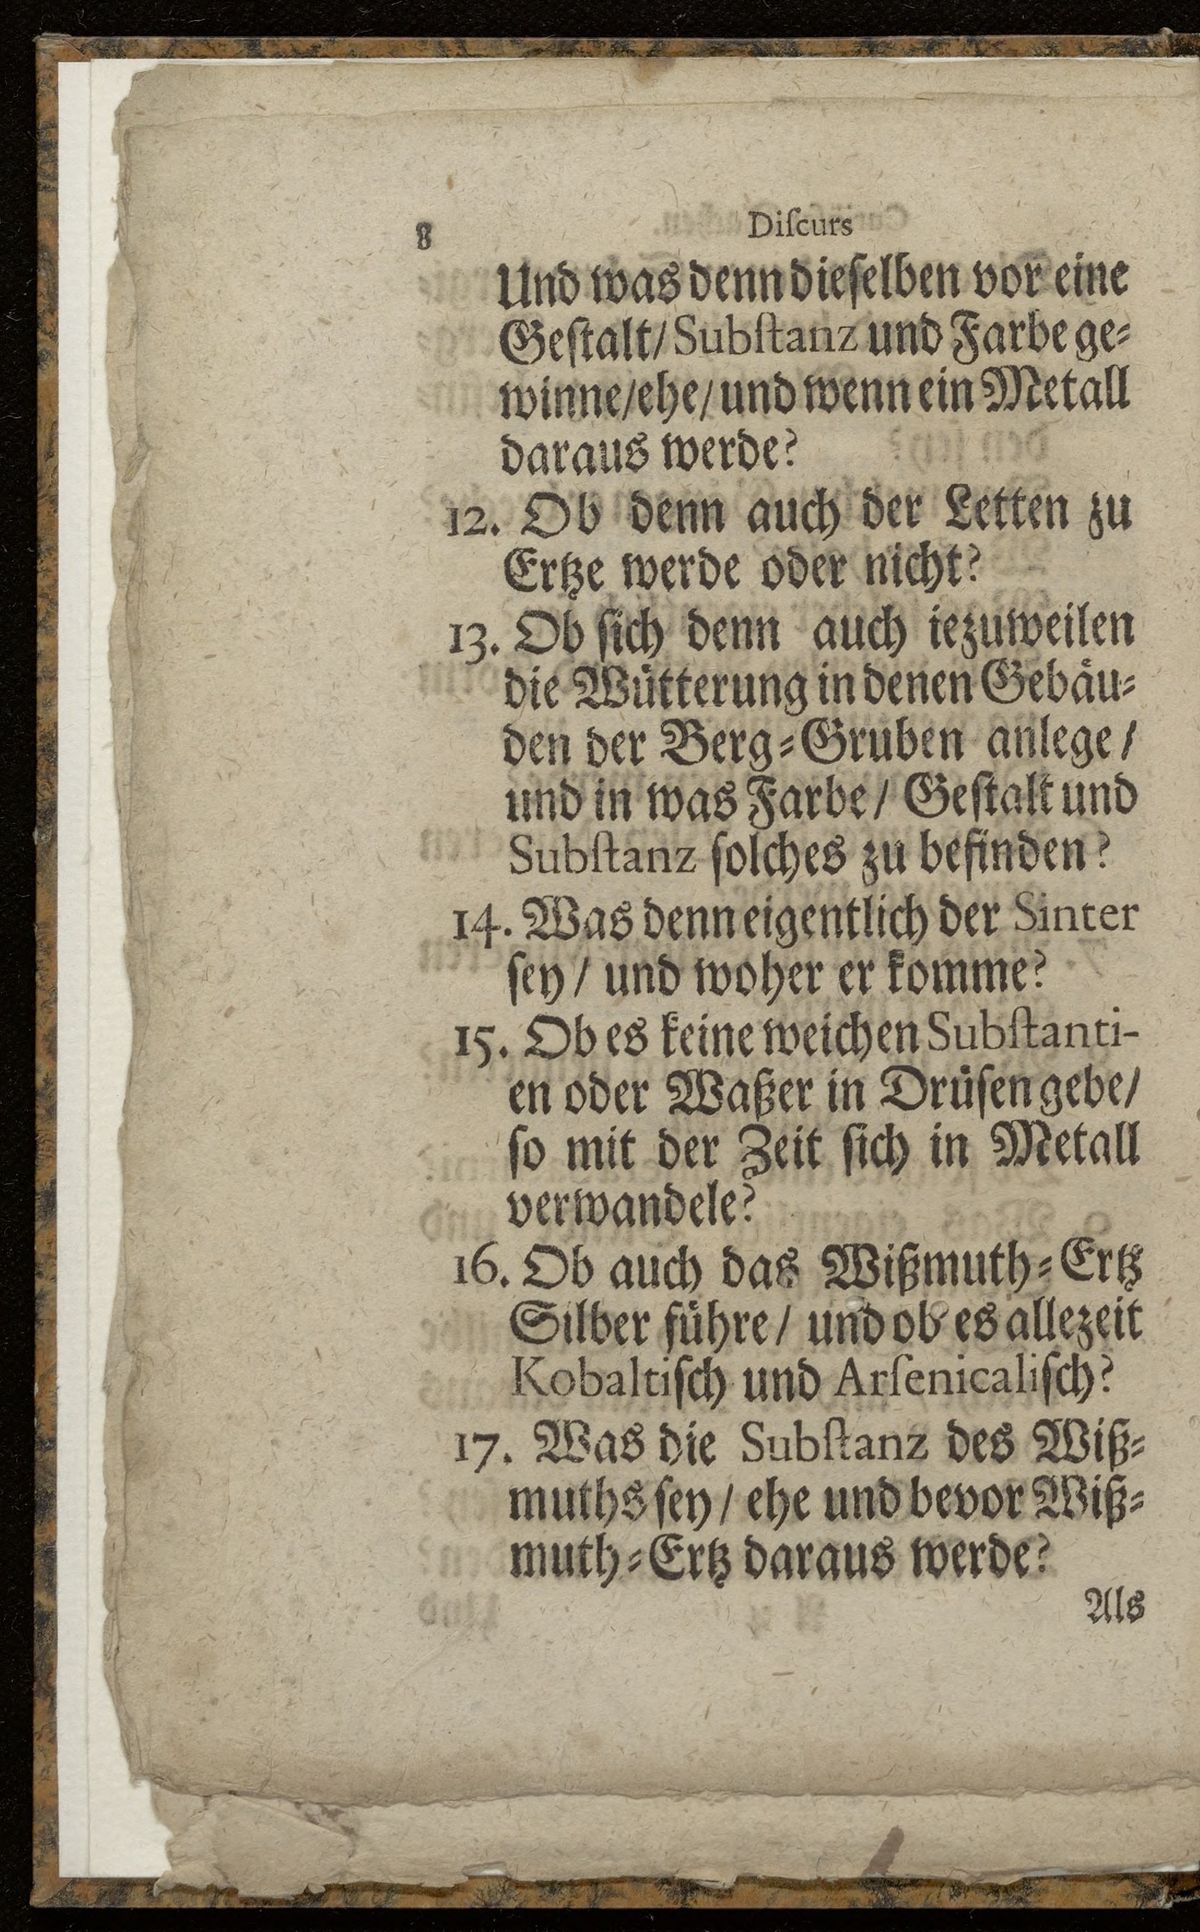 8 Diſcurs
Und was denn dieſelben vor eine
Geſtalt/ Subſtanz und Farbe ge⸗
winne/ehe/ und wenn ein Metall
daraus werde?
12. Ob denn auch der Letten zu
Ertze werde oder nicht?
13. Ob ſich denn auch iezuweilen
die Wütterung in denen Gebäu⸗
den der Berg⸗Gruben anlege/
und in was Farbe/ Geſtalt und
Subſtanz ſolches zu befinden?
14. Was denn eigentlich der Sinter
ſey/ und woher er komme?
15. Ob es keine weichen Subſtanti-
en oder Waßer in Drüſen gebe/
ſo mit der Zeit ſich in Metall
verwandele?
16. Ob auch das Wißmuth⸗Ertz
Silber führe/ und ob es allezeit
Kobaltiſch und Arſenicaliſch?
17. Was die Subſtanz des Wiß⸗
muths ſey/ ehe und bevor Wiß⸗
muth⸗Ertz daraus werde?
Als